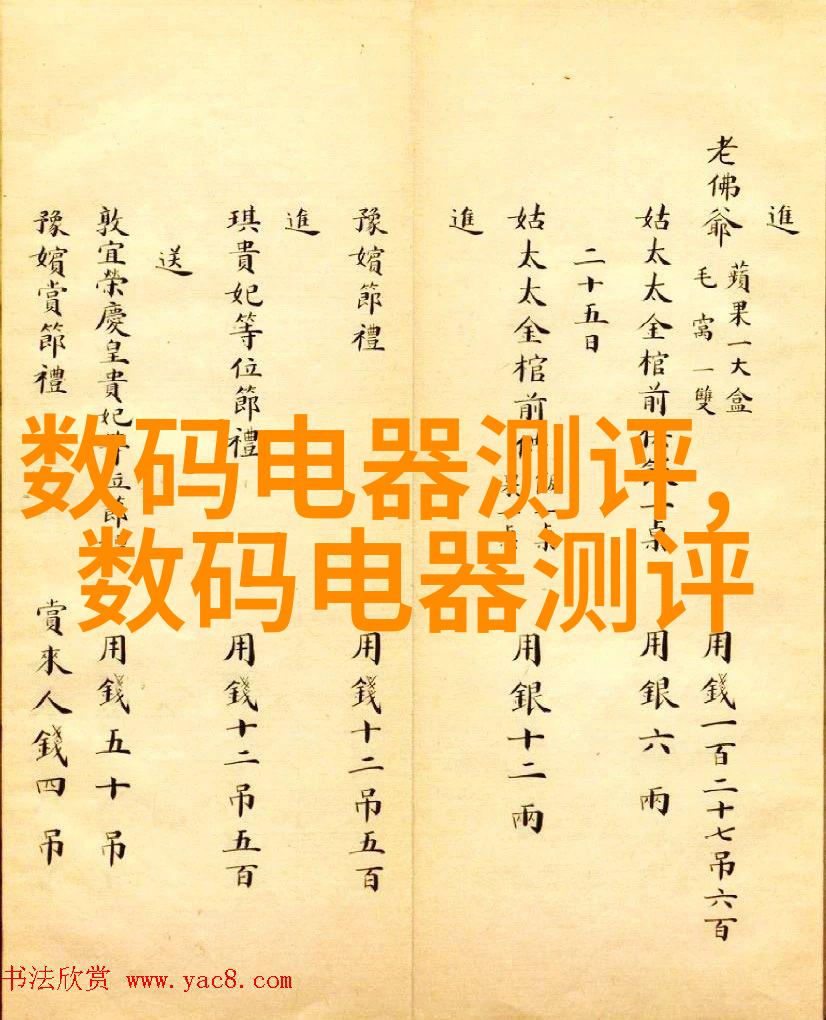 進
老佛爺 蘋果一大盒 毛窩一雙 用錢一百二十七吊六百
姑太太金棺前 一桌 用銀六兩
二十五日
姑太太金棺前 一桌 用銀十二兩
進
豫嬪節禮 用錢十二吊五百
進
琪貴妃等位節禮 用錢十二吊五百
送
敦宜榮慶皇貴妃等位節 用錢五十吊
豫嬪賞節禮 賞來人錢四吊
数码电器测评,
数码电器测评
书法欣赏 www.yac8.com